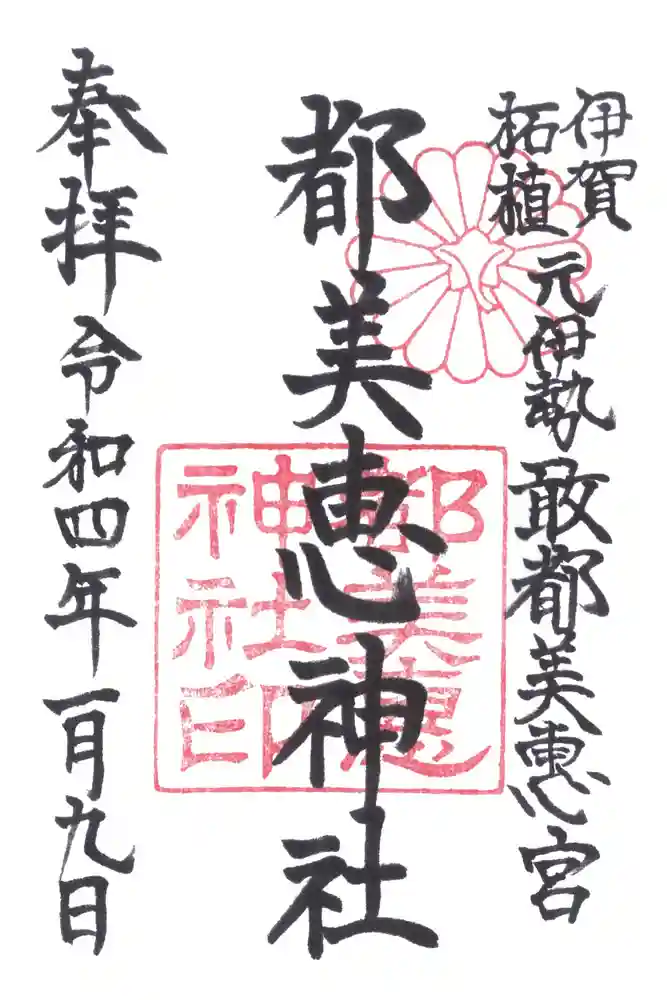 伊賀
柘植
元伊勢 敢都美恵宮
都美恵神社
都美恵
神社印
奉拝 令和四年一月九日